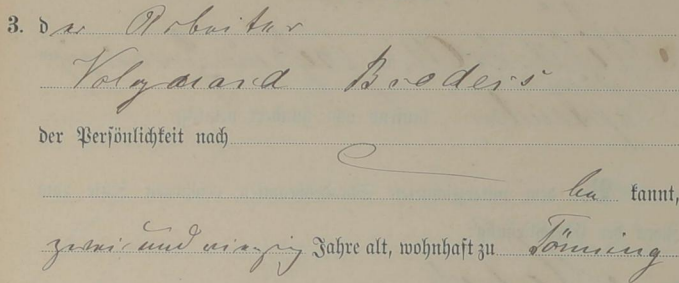 3. der Arbeiter
Volquard Broders
der Persönlichkeit nach
be kannt,
zwei und vierzig Jahre alt, wohnhaft zu Tönning